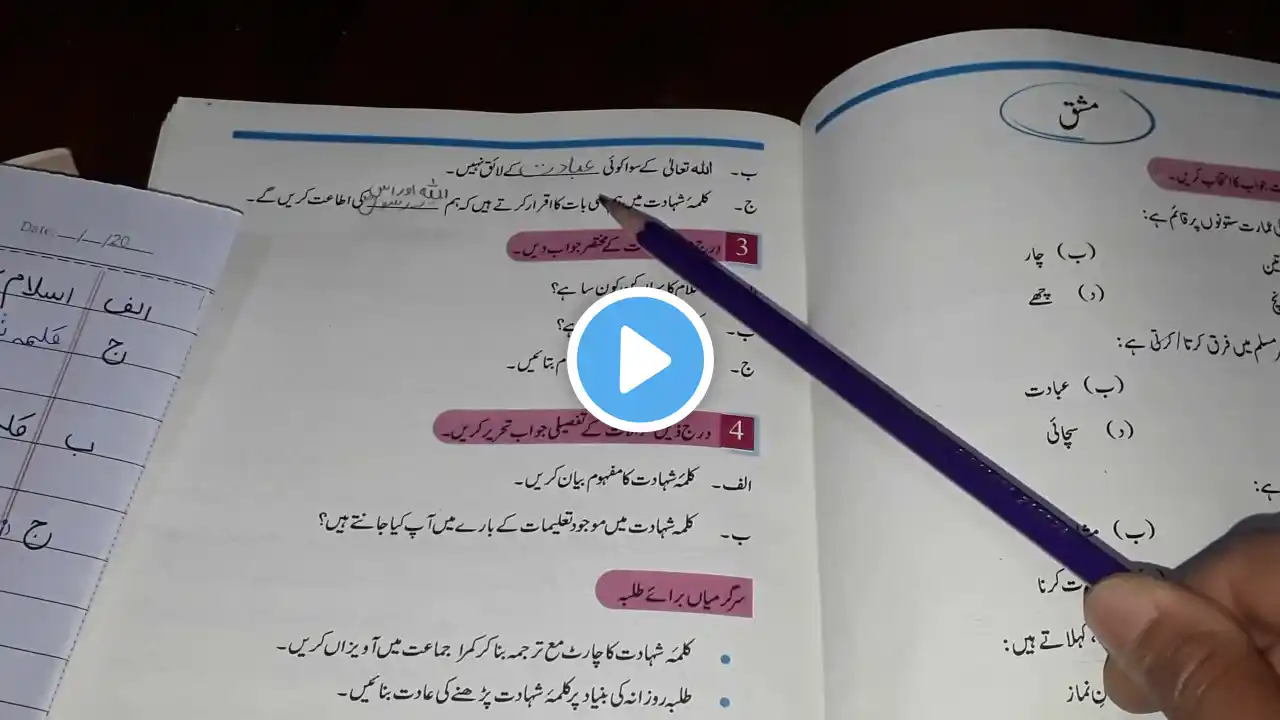 مشق
جواب کا انتخاب کریں۔
عمارت ستونوں پر قائم ہے:
(ب) چار
(د) چھے
مسلم میں فرق کرتا / کرتی ہے:
(ب) عبادت
(د) سچائی
ہے:
(ب)
کرنا
کہلاتے ہیں:
نماز
ب۔ اللہ تعالیٰ کے سوا کوئی عبادت کے لائق نہیں۔
ج۔ کلمۂ شہادت میں بات کا اقرار کرتے ہیں کہ ہم اللہ اور اس کے رسول کی اطاعت کریں گے۔
3 کے مختصر جواب دیں۔
کون سا ہے؟
ب۔ ہے؟
ج۔ بتائیں۔
4 درج ذیل کے تفصیلی جواب تحریر کریں۔
الف۔ کلمۂ شہادت کا مفہوم بیان کریں۔
ب۔ کلمۂ شہادت میں موجود تعلیمات کے بارے میں آپ کیا جانتے ہیں؟
سرگرمیاں برائے طلبہ
• کلمۂ شہادت کا چارٹ مع ترجمہ بنا کر کمرا جماعت میں آویزاں کریں۔
• طلبہ روزانہ کی بنیاد پر کلمۂ شہادت پڑھنے کی عادت بنائیں۔
Date: __/__/20__
الف اسلام
ج کلمہ
ب
ج